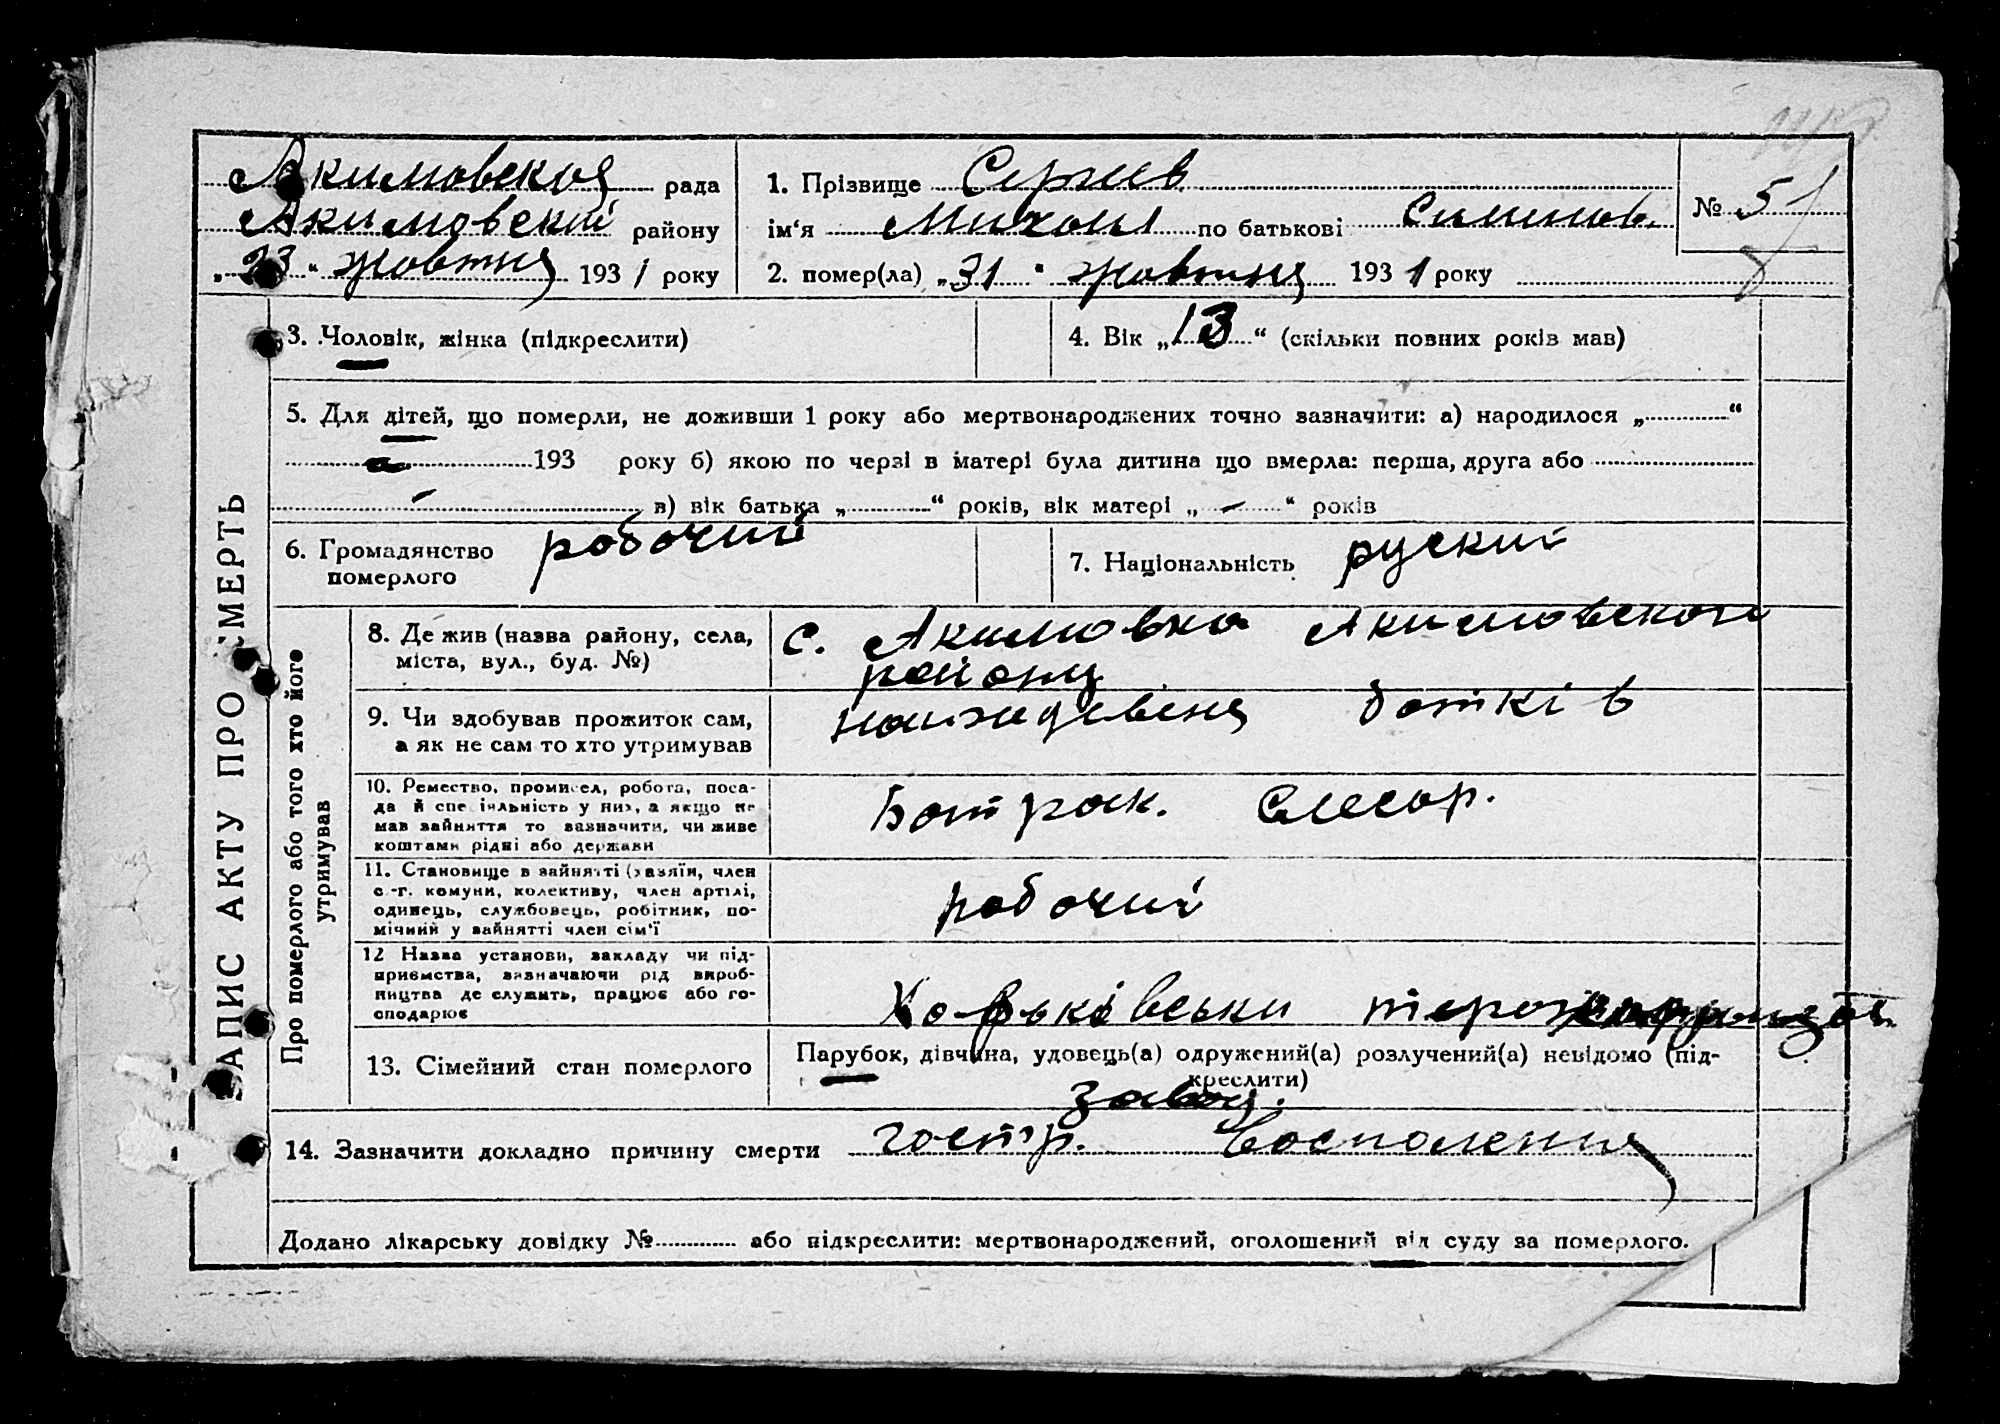 Акимовская рада
Акимовский району
„23“ жовтня 1931 року
1. Прізвище Сергиев
ім'я Михаил по батькові
2. помер(ла) „31“ жовтня 1931 року
№ 51
ЗАПИС АКТУ ПРО СМЕРТЬ
3. Чоловік, жінка (підкреслити)
4. Вік „13“ (скільки повних років мав)
5. Для дітей, що померли, не доживши 1 року або мертвонароджених точно зазначити: а) народилося „ “
193 року б) якою по черзі в матері була дитина що вмерла: перша, друга або
в) вік батька „ “ років, вік матері „ - “ років
6. Громадянство
померлого робочий
7. Національність руский
Про померлого або того хто його
утримував
8. Де жив (назва району, села,
міста, вул., буд. №)
с. Акимовка Акимовского
району
9. Чи здобував прожиток сам,
а як не сам то хто утримував
батків
10. Ремество, промисел, робота, поса-
да й спеціяльність у них, а якщо не
мав зайняття то зазначити, чи живе
коштами рідні або держави
Батрак. Слесар.
11. Становище в зайнятті (хазяїн, член
с.-г. комуни, колективу, член артілі,
одинець, службовець, робітник, по-
мічний у зайнятті член сім'ї
робочий
12 Назва установи, закладу чи під-
приємства, зазначаючи рід вироб-
ництва де служить, працює або го-
сподарює
Харьківськи
завод.
13. Сімейний стан померлого
Парубок, дівчина, удовець(а) одружений(а) розлучений(а) невідомо (під-
креслити)
14. Зазначити докладно причину смерти гостр. воспаления
Додано лікарську довідку № або підкреслити: мертвонароджений, оголошений від суду за померлого.